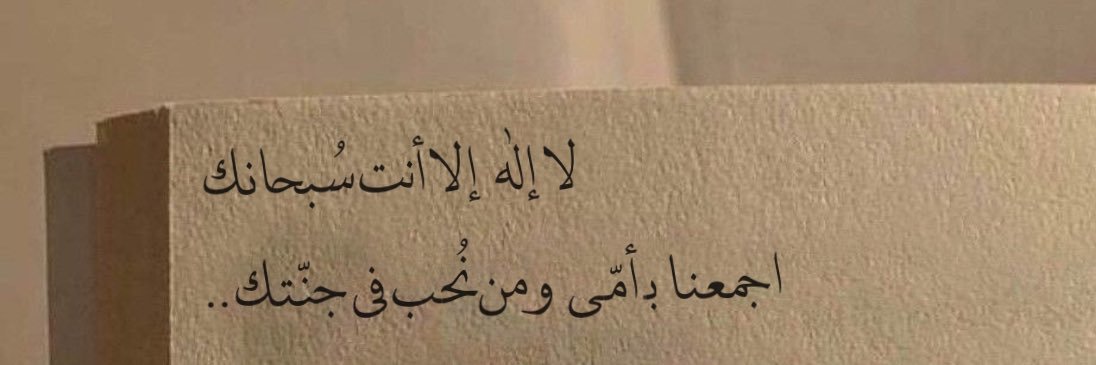 لا إلٰه إلا أنت سُبحانك
اجمعنا بـأمّى ومن نُحب فى جنّتك..